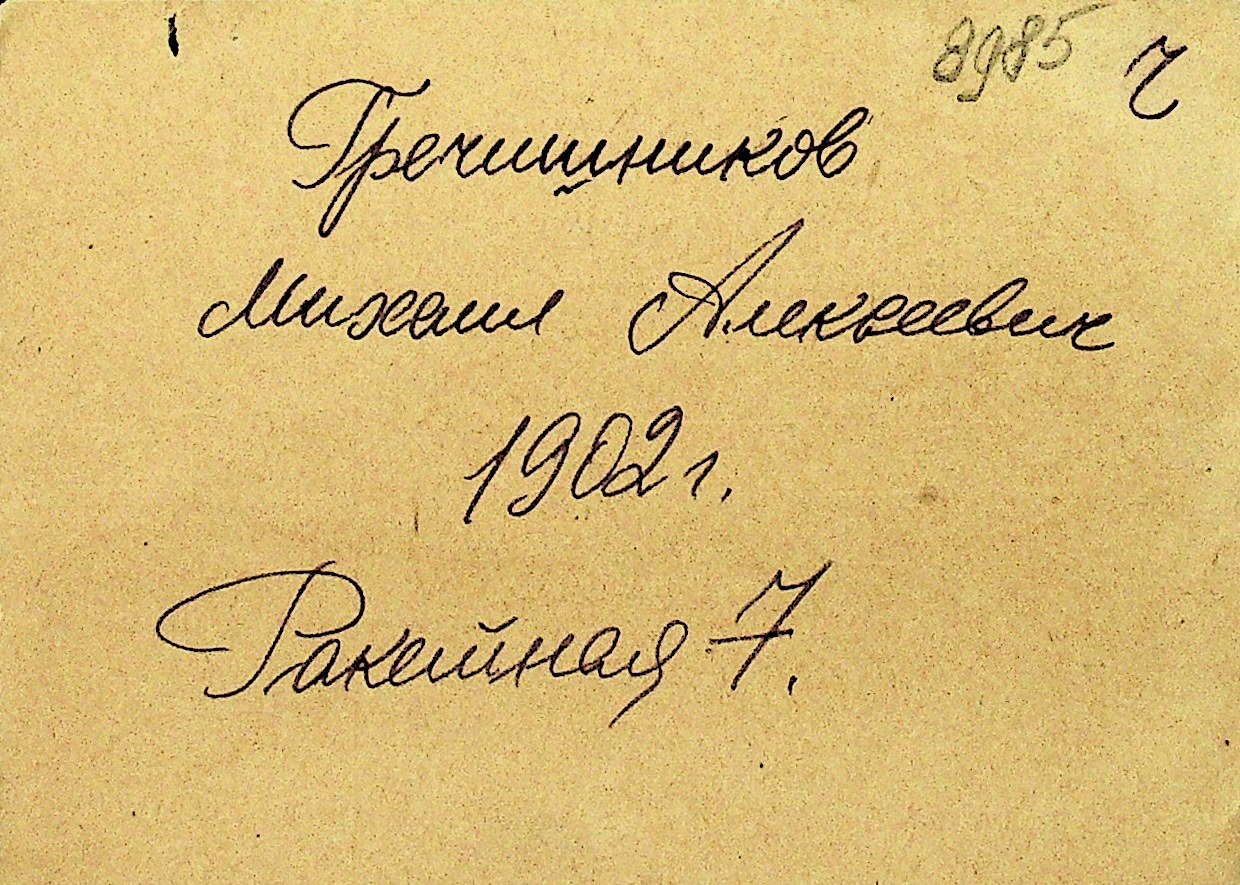 8985 ч
Гречишников
Михаил Алексеевич
1902 г.
Ракейная 7.